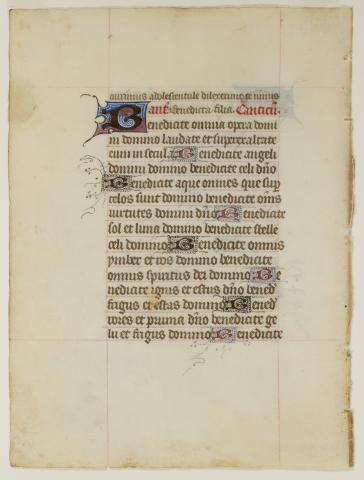 curimus adolescentule dilexerunt te nimis
ant. Benedicta filia. Canticum
Benedicite omnia opera domi
ni domino laudate et superexaltate
eum in secula. Benedicite angeli
domini domino benedicite celi dño
Benedicite aque omnes que sup
celos sunt domino benedicite oms
uirtutes domini dño Benedicite
sol et luna domino benedicite stelle
celi domino Benedicite omnis
ymber et ros domino benedicite
omnis spiritus dei domino Be
nedicite ignis et estus dño bened
frigus et estas domino Bened
rores et pruina dño benedicite ge
lu et frigus domino Benedicite